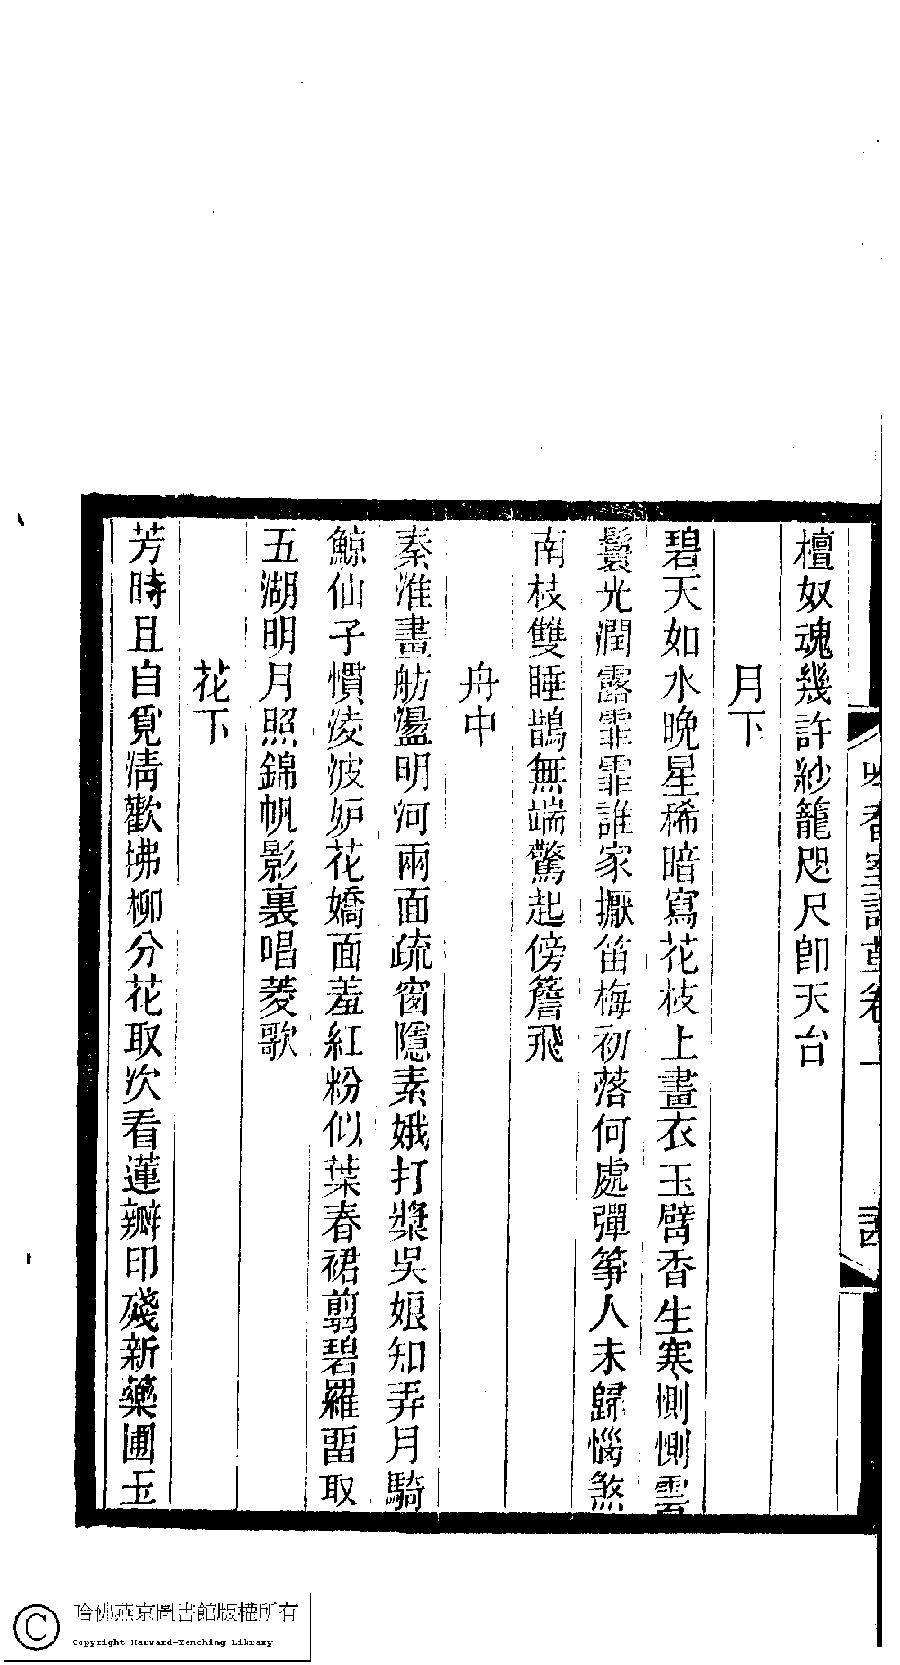 檀奴魂幾許紗籠咫尺卽天台
月下
碧天如水晚星稀暗寫花枝上畫衣玉臂香生寒惻惻雲
鬟光潤露霏霏誰家擫笛梅初落何處彈箏人未歸惱煞
南枝雙睡鵲無端驚起傍簷飛
舟中
秦淮畫舫盪明河兩面疏窗隱素娥打槳吳娘知弄月騎
鯨仙子慣淩波妒花嬌面羞紅粉似葉春裙剪碧羅畱取
五湖明月照錦帆影裏唱菱歌
花下
芳時且自覓淸歡拂柳分花取次看蓮瓣印殘新藥圃玉
哈佛燕京圖書館版權所有
Copyright Harvard-Yenching Library